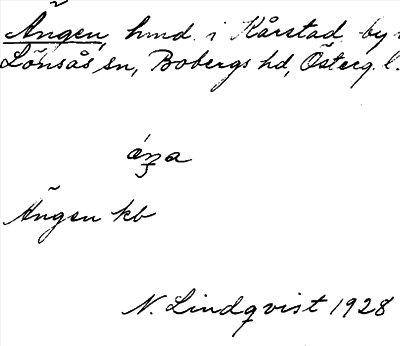 Ängen, hmd. i Kårstad by
Lönsås sn, Bobergs hd, Österg. l.
Ängen kb
N. Lindqvist 1928